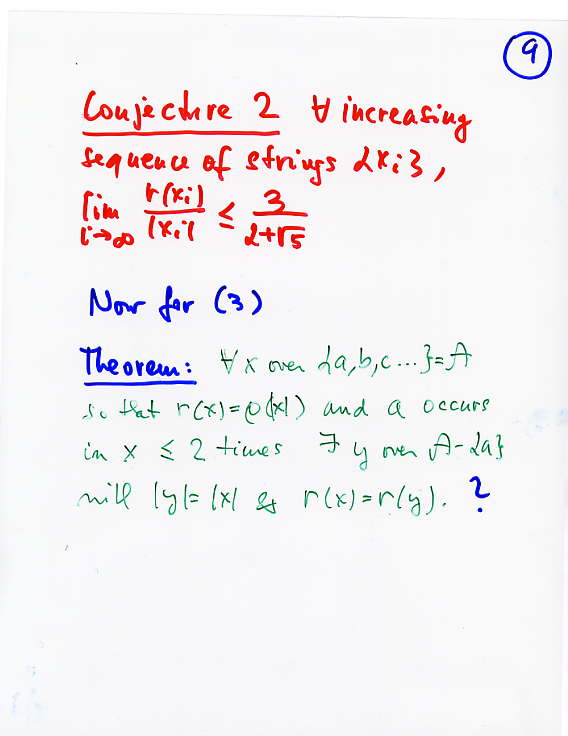 9
Conjecture 2 ∀ increasing
sequence of strings {xᵢ},
lim_{i→∞} r(xᵢ)/|xᵢ| ≤ 3/(2+√5)
Now for (3)
Theorem: ∀ x over {a,b,c...}=A
so that r(x)=ρ(|x|) and a occurs
in x ≤ 2 times ∃ y over A-{a}
with |y|=|x| & r(x)=r(y). ?